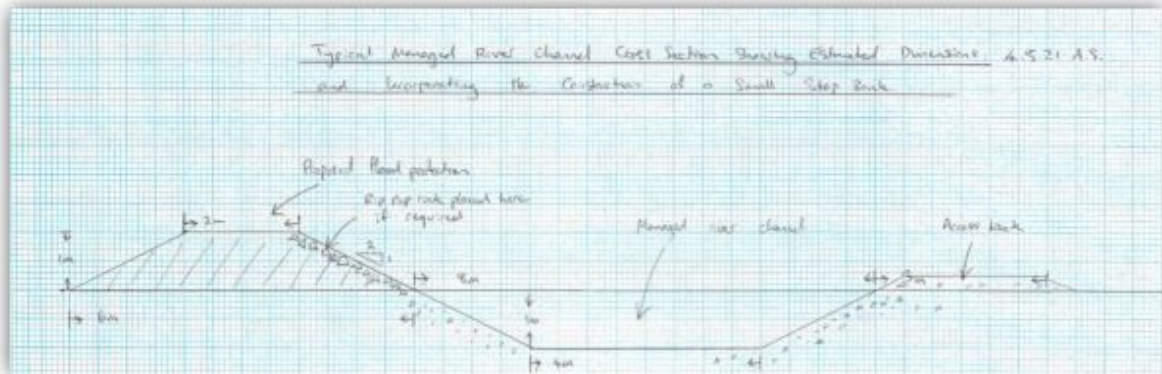 Typical Managed River Channel Cross Section Showing Estimated Dimensions 4.5.21 A.S.
and Incorporating the Construction of a Small Stop Bank
Proposed flood protection
Rip rap rock placed here
if required
2m
Managed river channel
Access bank
1m
2
1
8m
3m
6m
1m
4m